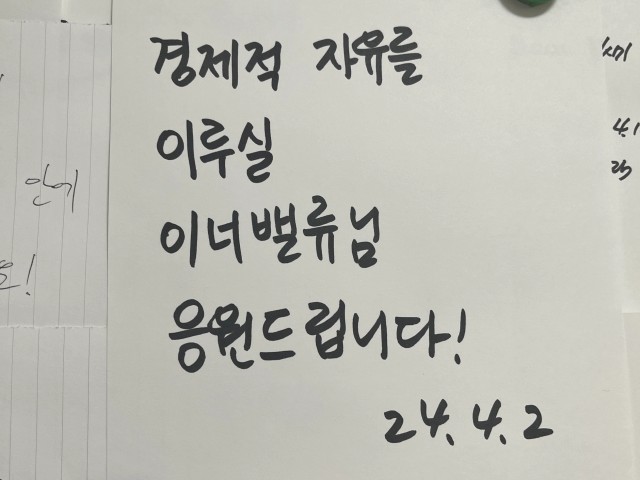 경제적 자유를
이루실
이너밸류님
응원드립니다!
24. 4. 2
4.1